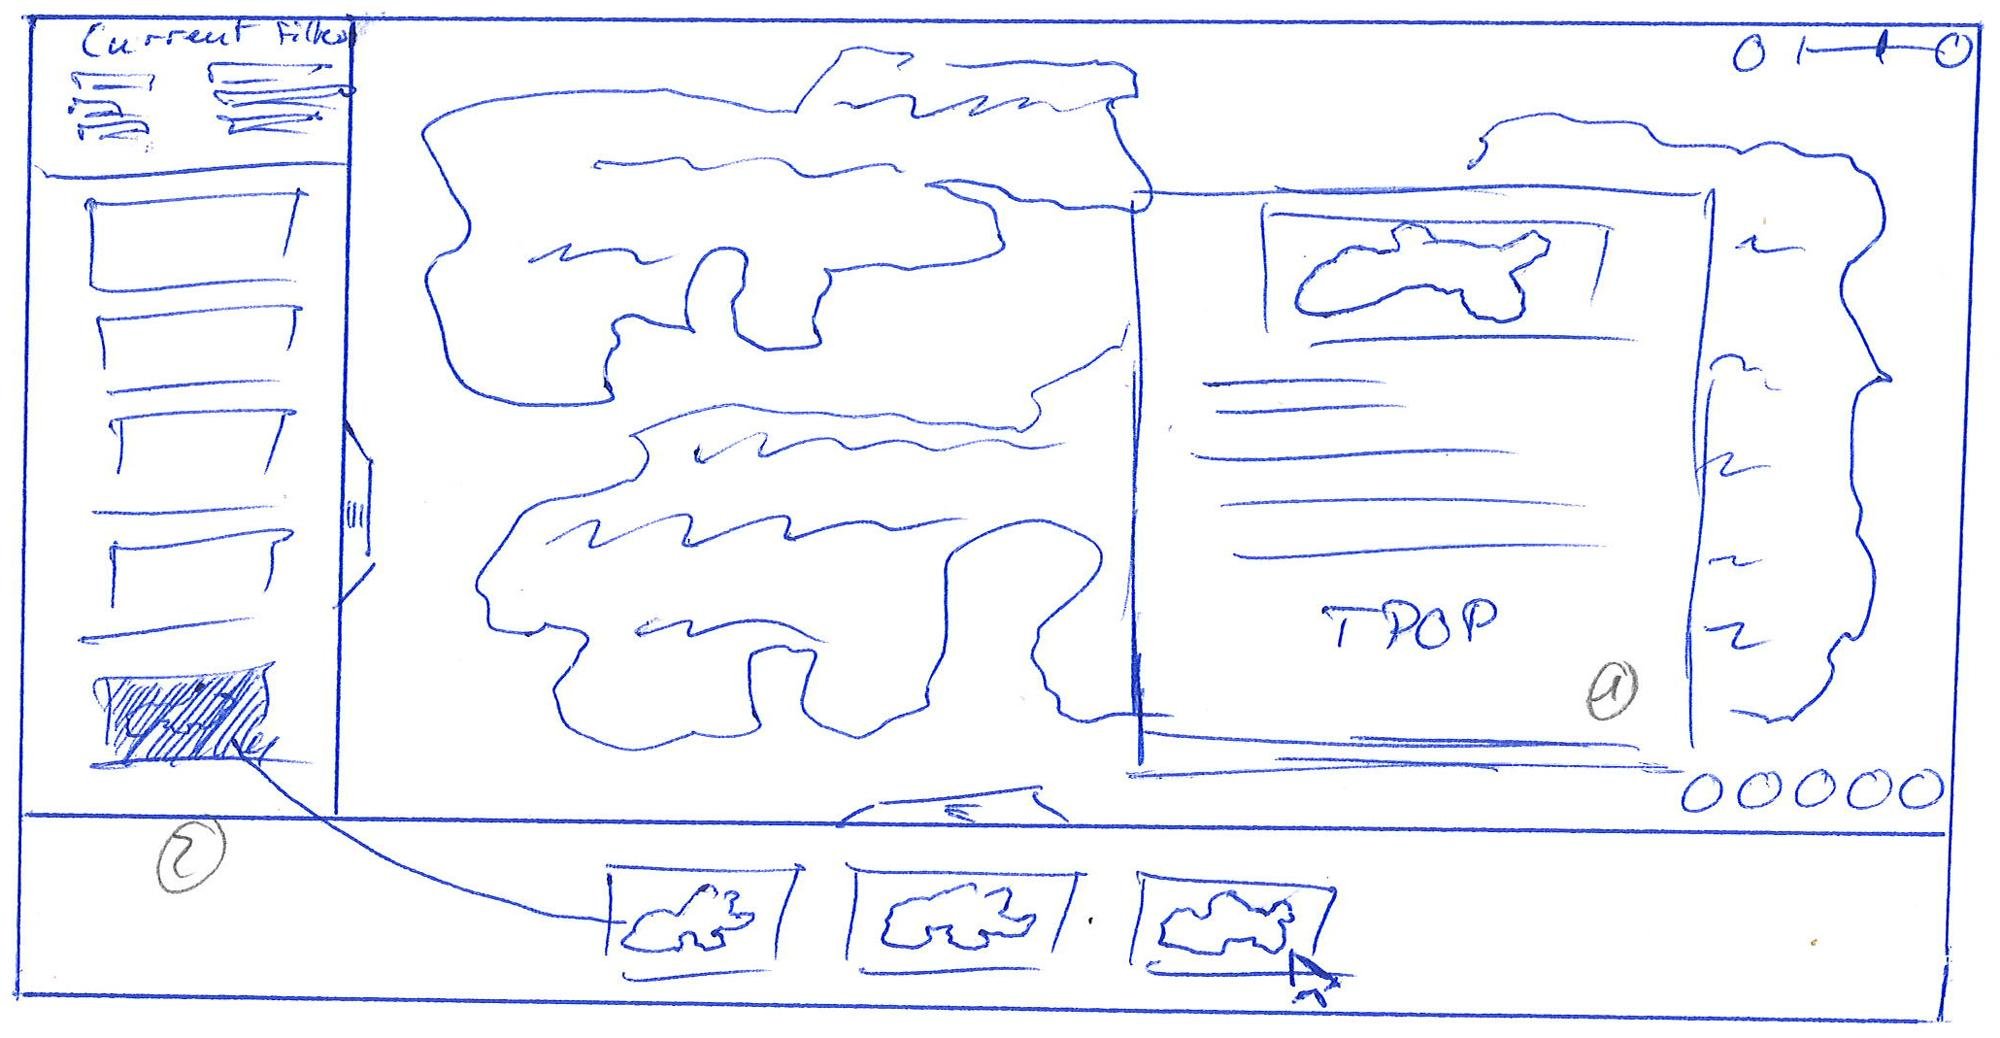 Current Filter
TPOP
1
2